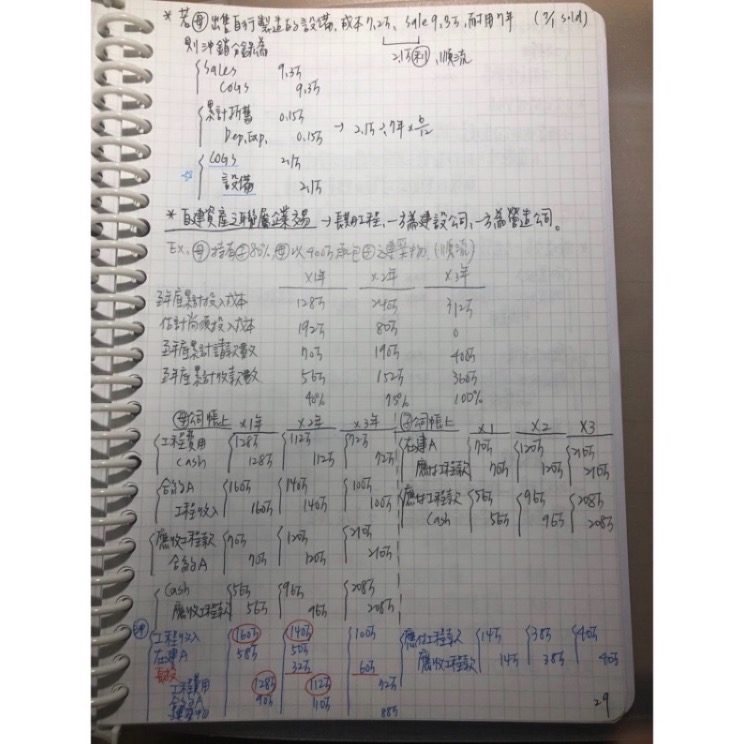 * 若母出售自行製造的設備, 成本7.2万, Sale 9.3万, 耐用7年 (7/1 sold)
則沖銷分錄為
2.1万利, 順流
Sales 9.3万
COGS 9.3万
累計折舊 0.15万
Dep. Exp. 0.15万 → 2.1万÷7年×6/12
COGS 2.1万
☆ 設備 2.1万
* 自建資產之聯屬企業交易 → 長期工程, 一方為建設公司, 一方為營造公司。
Ex. 母持有子80%, 母以400万承包子之建築物 (順流)
X1年 X2年 X3年
至年底累計投入成本 128万 240万 312万
估計尚須投入成本 192万 80万 0
至年底累計請款數 70万 190万 400万
至年底累計收款數 56万 152万 360万
40% 75% 100%
母公司帳上 X1年 X2年 X3年
工程費用 128万 112万 72万
Cash 128万 112万 72万
合約A 160万 140万 100万
工程收入 160万 140万 100万
應收工程款 70万 120万 210万
合約A 70万 120万 210万
Cash 56万 96万 208万
應收工程款 56万 96万 208万
子公司帳上 X1 X2 X3
在建A 70万 120万 210万
應付工程款 70万 120万 210万
應付工程款 56万 96万 208万
Cash 56万 96万 208万
工程收入 160万 140万 100万
在建A 58万 50万
長投 32万 60万
工程費用 128万 112万 72万
合約A 90万 110万
88万
應付工程款 14万 38万 40万
應收工程款 14万 38万 40万
29